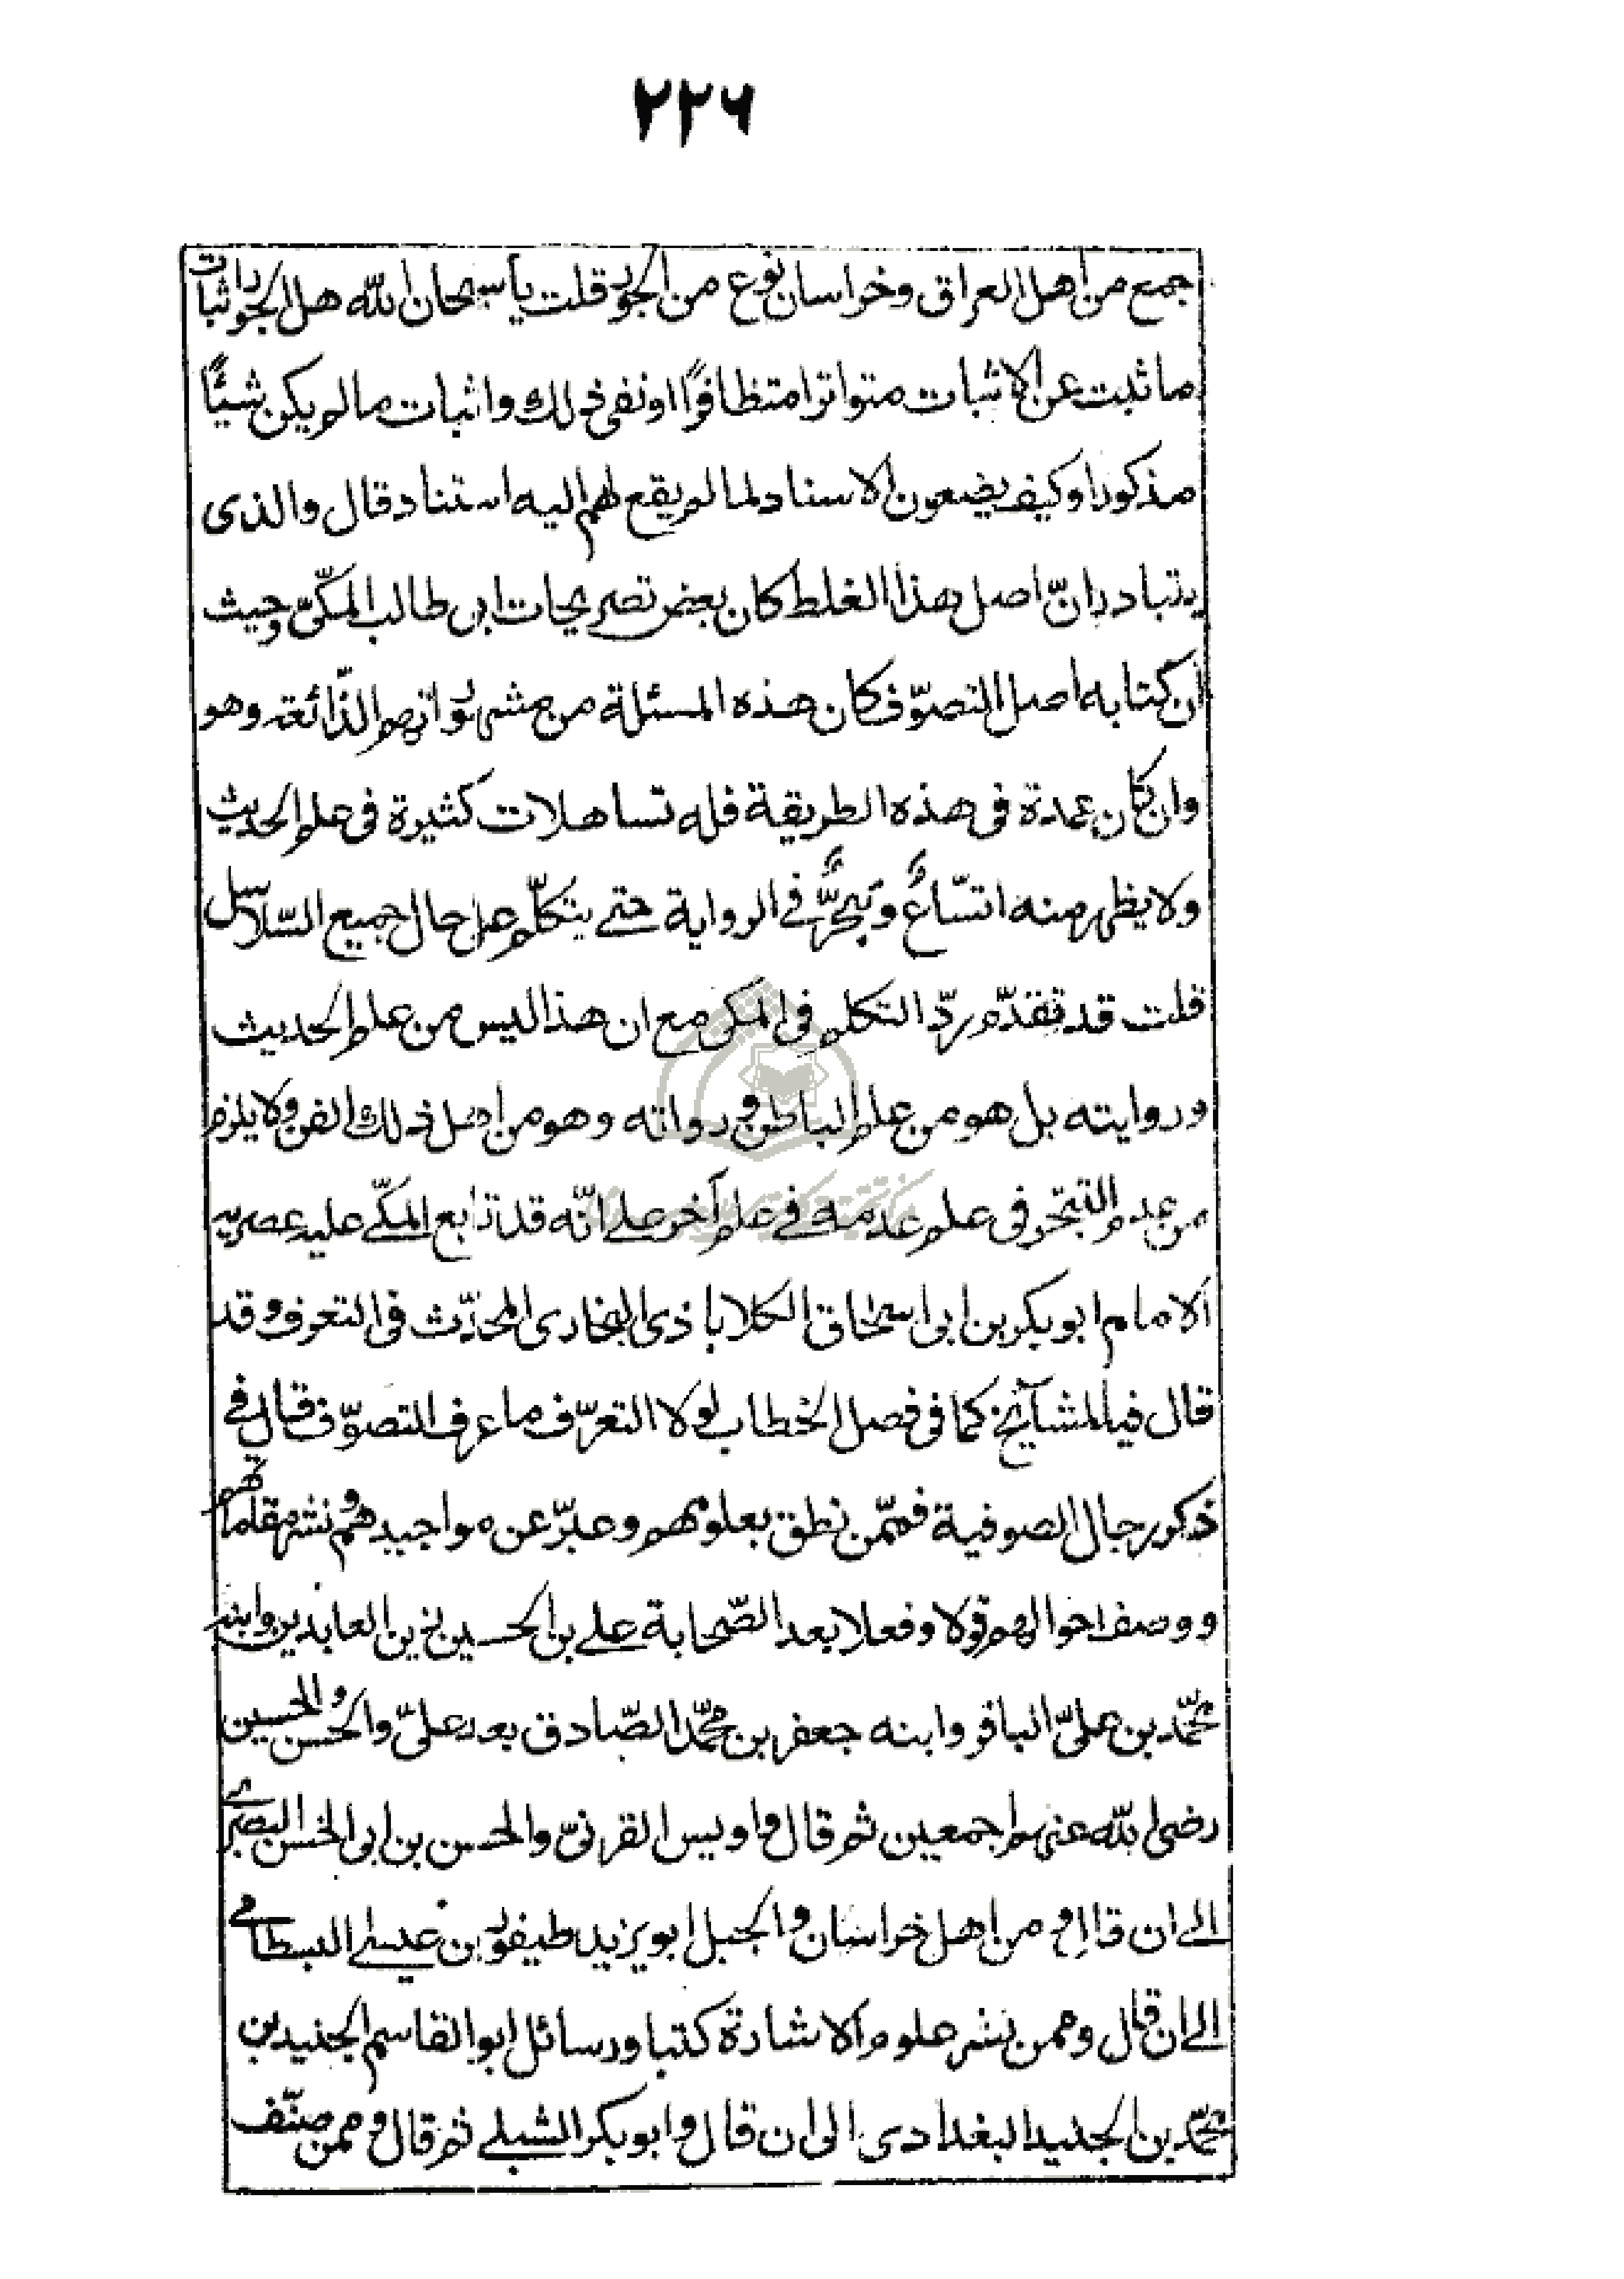 ٢٢٦
جمع من اهل العراق وخراسان نوع من الجود قلت يا سبحان الله هل الجود اثبات
ما ثبت عن الاثبات متواترا متظافرًا او نفى ذلك واثبات ما لم يكن شيئًا
مذكورا وكيف يضعون الاسناد لما لم يقع لهم اليه استناد قال والذى
يتبادر انّ اصل هذا الغلط كان بعض تصريحات ابى طالب المكّىّ وحيث
ان كتابه اصل التصوّف كان هذه المسئلة من مشهوراتهم الذّائعة وهو
وان كان عمدة فى هذه الطريقة فله تساهلات كثيرة فى علم الحديث
ولا يظهر منه اتسّاعٌ وتبحّرٌ فى الرواية حتى يتكلّم على حال جميع السّلاسل
قلت قد تقدّم ردّ التكلم فى المكى مع ان هذا ليس من علم الحديث
وروايته بل هو من علم الباطن ورواته وهو من اصل ذلك الفن ولا يلزم
من عدم التبحّر فى علم عدمه فى علم آخر على انّه قد تابع المكّى عليه عصريه
الامام ابو بكر بن ابى اسحاق الكلاباذى البخارى المحدّث فى التعرف وقد
قال فيه المشآئخ كما فى فصل الخطاب لولا التعرّف ما عرف التصوّف قال فى
ذكر رجال الصوفية فممّن نطق بعلومهم وعبّر عن مواجيدهم ونشر مقاماتهم
ووصف احوالهم قولا وفعلا بعد الصّحابة على بن الحسين زين العابدين وابنه
محمّد بن علىّ الباقر وابنه جعفر بن محمّد الصّادق بعد علىّ والحسن والحسين
رضى الله عنهم اجمعين ثم قال واويس القرنىّ والحسن بن ابى الحسن البصرى
الى ان قال ومن اهل خراسان والجبل ابو يزيد طيفور بن عيسى البسطامى
الى ان قال وممن نشر علوم الاشارة كتبا ورسائل ابو القاسم الجنيد بن
محمّد بن الجنيد البغدادى الى ان قال وابو بكر الشبلى ثم قال وممن صنّف